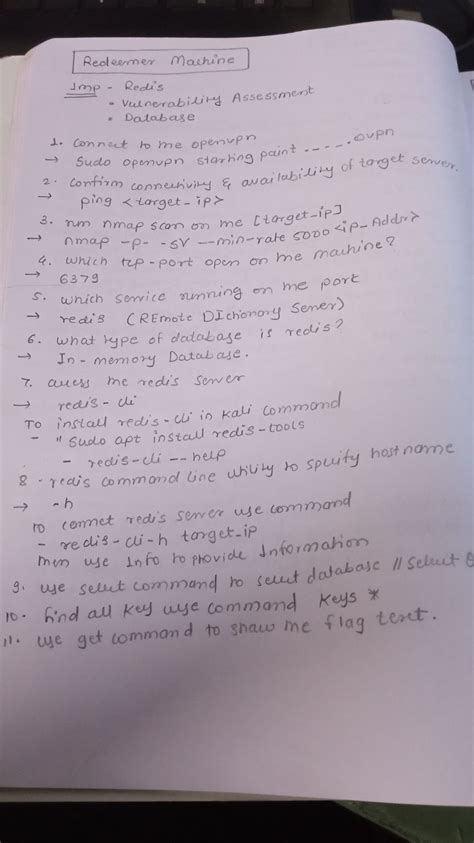 Redeemer Machine
Imp - Redis
• Vulnerability Assessment
• Database
1. connect to the openvpn
→ Sudo openvpn starting point ----- .ovpn
2. confirm connectivity & availability of target server.
→ ping <target-ip>
3. run nmap scan on the [target-ip]
→ nmap -p- -sV --min-rate 5000 <ip-Addr>
4. which tcp-port open on the machine?
→ 6379
5. which service running on the port
→ redis (REmote DIctionary Server)
6. what type of database is redis?
→ In-memory Database.
7. access the redis server
→ redis-cli
To install redis-cli in kali command
- "sudo apt install redis-tools
- redis-cli --help
8 - redis command line utility to specify hostname
→ -h
to connect redis server use command
- redis-cli -h target-ip
then use Info to provide Information
9. use select command to select database // Select
10. find all key use command Keys *
11. use get command to show the flag text.